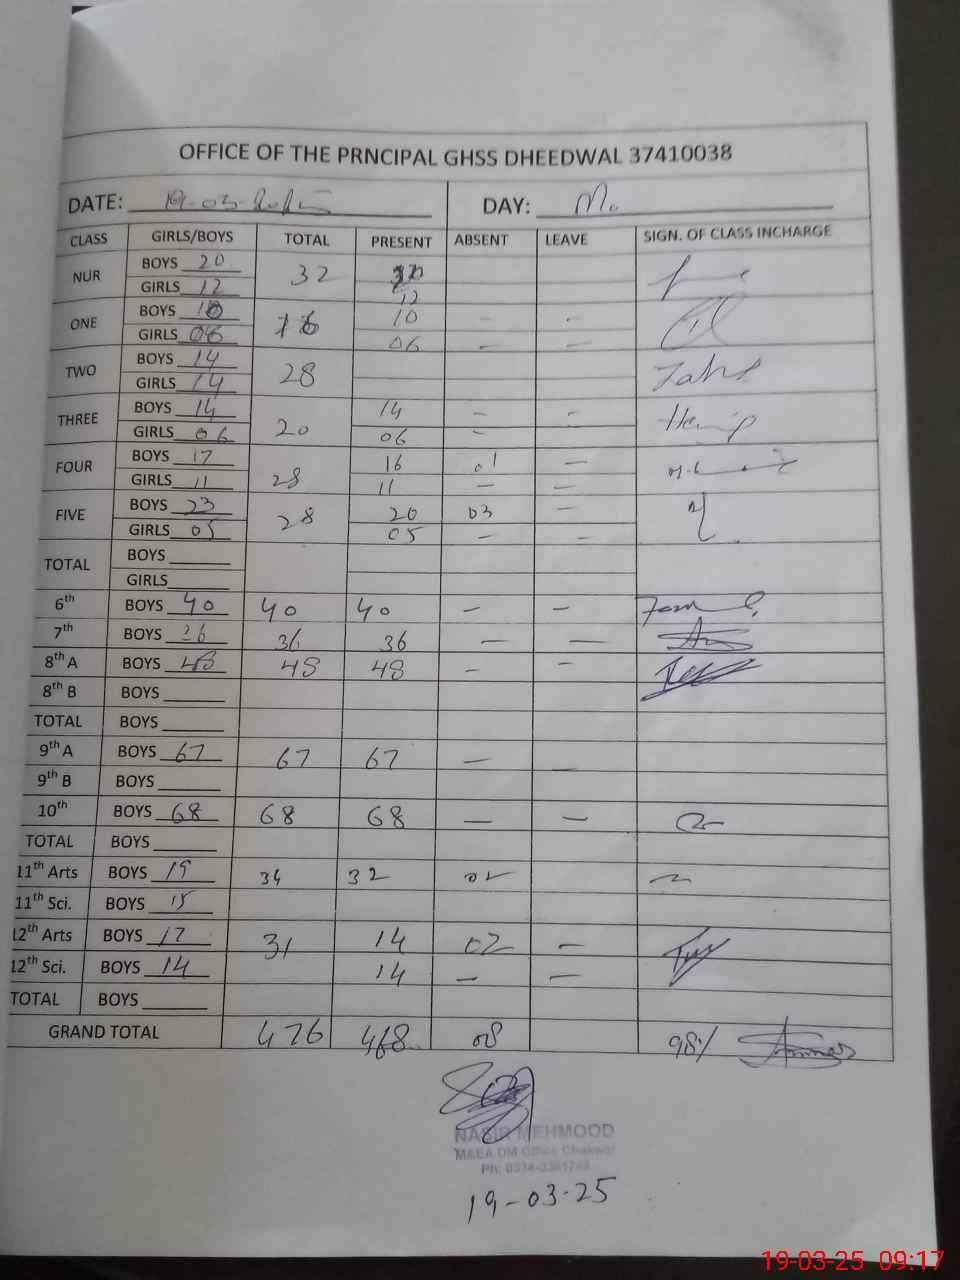 OFFICE OF THE PRNCIPAL GHSS DHEEDWAL 37410038
DATE: 19-03- DAY:
CLASS GIRLS/BOYS TOTAL PRESENT ABSENT LEAVE SIGN. OF CLASS INCHARGE
NUR BOYS 20 32
GIRLS 12 12
ONE BOYS 10 16 10 - -
GIRLS 06 06 - -
TWO BOYS 14 28
GIRLS 14
THREE BOYS 14 20 14 - -
GIRLS 06 06 -
FOUR BOYS 17 28 16 01 -
GIRLS 11 11 - -
FIVE BOYS 23 28 20 03 -
GIRLS 05 05 - -
TOTAL BOYS
GIRLS
6th BOYS 40 40 40 - -
7th BOYS 36 36 36 - -
8th A BOYS 48 48 48 - -
8th B BOYS
TOTAL BOYS
9th A BOYS 67 67 67 - -
9th B BOYS
10th BOYS 68 68 68 - -
TOTAL BOYS
11th Arts BOYS 19 34 32 02
11th Sci. BOYS 15
12th Arts BOYS 17 31 14 02 -
12th Sci. BOYS 14 14 - -
TOTAL BOYS
GRAND TOTAL 476 468 08 98%
NASIR MEHMOOD
M&EA DM Office Chakwal
Ph:
19-03-25
19-03-25 09:17